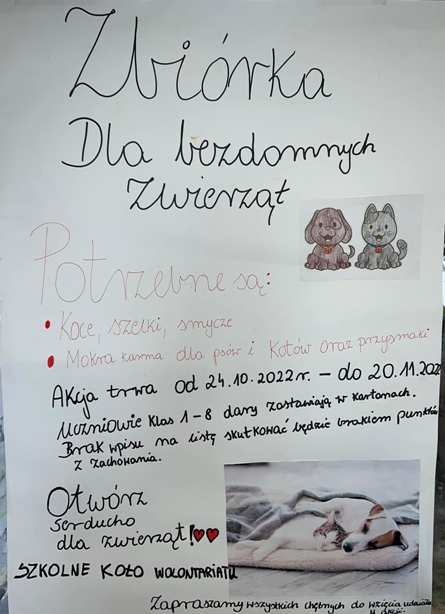 Zbiórka
Dla bezdomnych
Zwierząt
Potrzebne są:
• Koce, szelki, smycze
• Mokra karma dla psów i Kotów oraz przysmaki
Akcja trwa od 24.10.2022r. – do 20.11.202
Uczniowie klas 1-8 dary zostawiają w Kartonach.
Brak wpisu na listę skutkować będzie brakiem punktów
z zachowania.
Otwórz
serducho
dla zwierząt!
SZKOLNE KOŁO WOLONTARIATU
Zapraszamy wszystkich chętnych do wzięcia udziału
w akcji